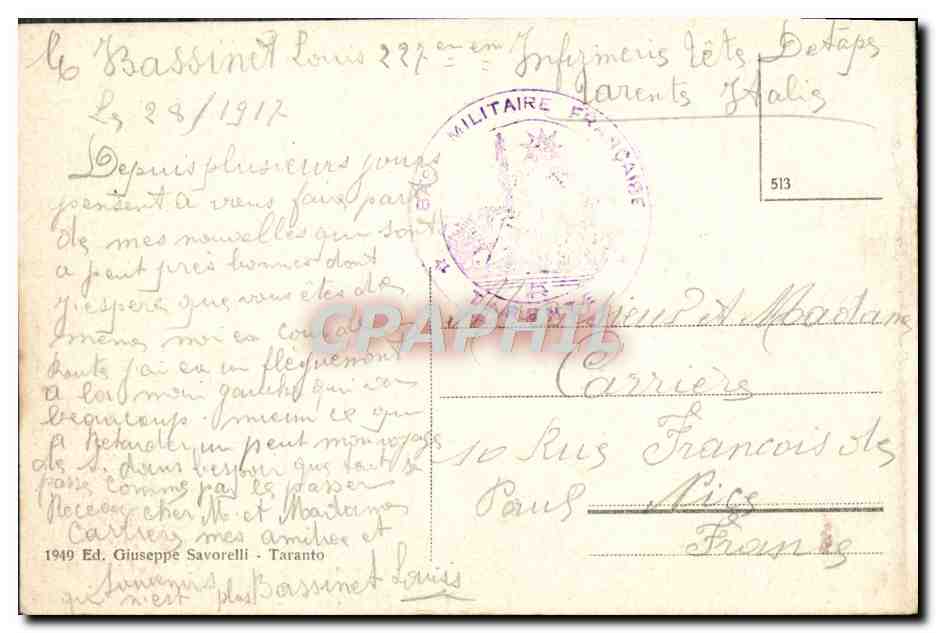 Bassinet Louis 227 en en Infirmerie Tête Detaps
Tarente Italie
Le 28/1917
Depuis plusieurs jours
pensent a vous faire part
de mes nouvelles qui sont
a peut près bonnes dont
j'espere que vous êtes de
mêmes moi en cour de
route j'ai eu un fleguement
a la main gauche qui va
beaucoup mieux ce qui
a Retarder un peut mon voyage
de S. dans l'espoir que tout se
passe comme par le passer
Recever cher M. et Madame
Carriere mes amitiee et
souvenirs
qu n'est plus Bassinet Louis
MILITAIRE FRANÇAISE
513
Monsieur et Madame
Carriere
10 Rue Francois de
Paul Nice
France
1949 Ed. Giuseppe Savorelli - Taranto
CPAPHIL